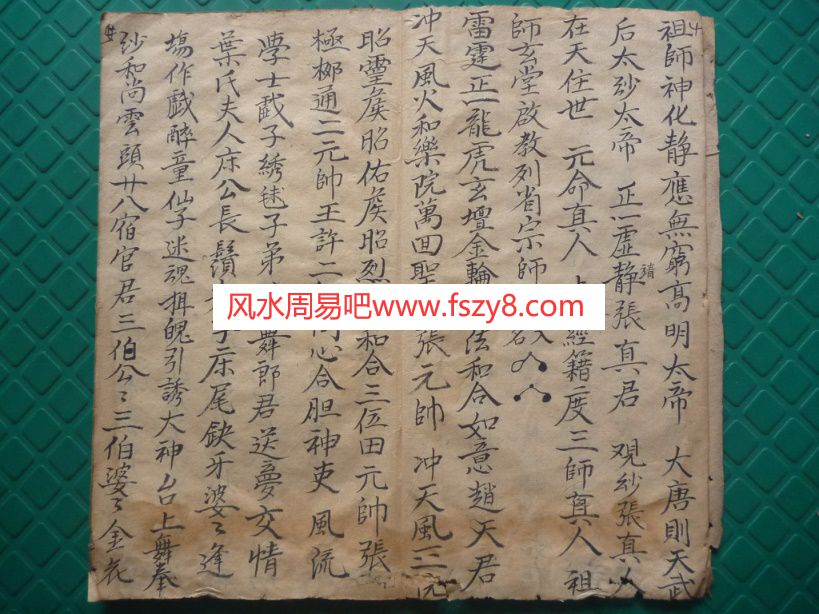 祖師神化静應無窮髙明太帝 大唐則天武
后太玅太帝 正一虚静張真君 观玅張真人
在天住世 元命真人 經籍度三師真人 祖
師玄堂啟教列省宗師
雷霆正一龍虎玄壇金輪法和合如意趙天君
冲天風火和樂院萬回聖張元帥 冲天風三
昭靈矦昭佑矦昭烈和合三位田元帥張
極柳通二元帥王許二同心合胆神吏 風流
學士戲子綉毬子弟舞郎君送夢交情
葉氏夫人床公長鬚子床尾缺牙婆〻逢
塲作戲醉童仙子迷魂揖魄引誘大神台上舞奉
玅和尚雲頭廿八宿官君三伯公〻三伯婆〻金花
风水周易吧www.fszy8.com